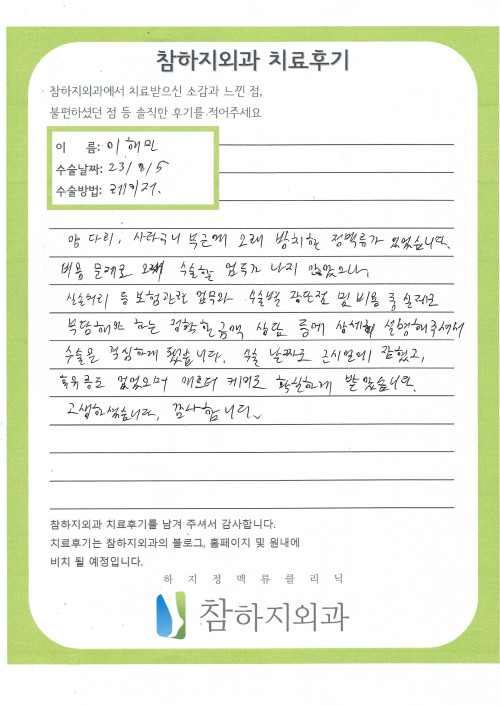 참하지외과 치료후기
참하지외과에서 치료받으신 소감과 느낀 점,
불편하셨던 점 등 솔직한 후기를 적어주세요
이 름: 이해민
수술날짜: 23/8/5
수술방법: 레이저.
양 다리, 사타구니 부근에 오래 방치한 정맥류가 있었습니다.
비용 문제로 오래 수술할 엄두가 나지 않았으나,
실손처리 등 보험관련 업무와 수술별 장단점 및 비용 중 실제로
부담해야 하는 정확한 금액 상담 등에 상세히 설명해주셔서
수술을 결심하게 됐습니다. 수술 날짜도 근시일에 잡혔고,
후유증도 없었으며 애프터 케어도 확실하게 받았습니다.
고생하셨습니다, 감사합니다.
참하지외과 치료후기를 남겨 주셔서 감사합니다.
치료후기는 참하지외과의 블로그, 홈페이지 및 원내에
비치 될 예정입니다.
하지정맥류클리닉
참하지외과